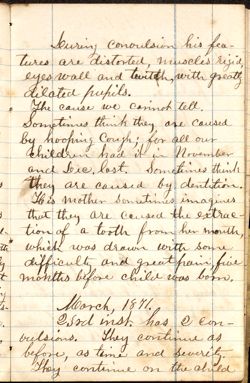 During convulsion his fea-
tures are distorted, muscles rigid,
eyes wall and twitch, with greatly
dilated pupils.
The cause we cannot tell.
Sometimes think they are caused
by hooping Cough; for all our
children had it in November
and Dec, last. Sometimes think
they are caused by dentition.
His mother sometimes imagines
that they are caused the extrac-
tion of a tooth from her mouth,
which was drawn with some
difficulty and great pain, five
months before child was born.
March, 1871.
23rd inst. has 2 con-
vulsions. They continue as
before, as time and severity.
They continue on the child